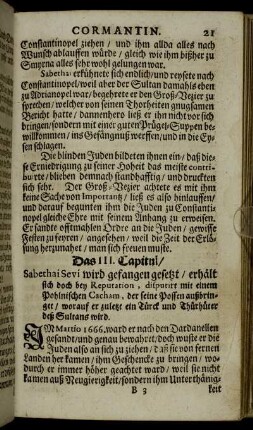 CORMANTIN. 21
Constantinopel ziehen / und ihm allda alles nach
Wunsch ablauffen würde / gleich wie ihm bißher zu
Smyrna alles sehr wohl gelungen war.
Sabethai erkühnete sich endlich / und reysete nach
Constantinopel / weil aber der Sultan damahls eben
zu Adrianopel war / begehrete er den Groß-Vezier zu
sprechen / welcher von seinen Thorheiten gnugsamen
Bericht hatte / dannenhero ließ er ihn nicht vor sich
bringen / sondern mit einer guten Prügel-Suppen be-
willkommen / ins Gefängnuß werffen / und in die Ey-
sen schlagen.
Die blinden Juden bildeten ihnen ein / daß die-
se Erniedrigung zu seiner Hoheit das meiste contri-
buirte / blieben demnach standhafftig / und druckten
sich sehr. Der Groß-Vezier achtete es mit ihm
keine Sache von Importantz / ließ es also hinlauffen /
und darauf begunten ihn die Juden zu Constanti-
nopel gleiche Ehre mit seinem Anhang zu erweisen.
Er sandte offtmahlen Ordre an die Juden / gewisse
Festen zu feyren / angesehen / weil die Zeit der Erlö-
sung herzunahet / man sich freuen muste.
Das III. Capitul /
Sabethai Sevi wird gefangen gesetzt / erhält
sich doch bey Reputation, disputirt mit einem
Pohlnischen Cacham, der seine Possen außbrin-
get / worauf er zuletzt ein Türck und Thürhüter
deß Sultans wird.
IM Martio 1666. ward er nach den Dardanellen
gesandt / und genau bewahret / doch wuste er die
Juden also an sich zu ziehen / daß sie von fernen
Landen her kamen / ihm Geschencke zu bringen / wo-
durch er immer höher geachtet ward / weil sie nicht
kamen auß Neugierigkeit / sondern ihm Unterthänig-
B 3 keit